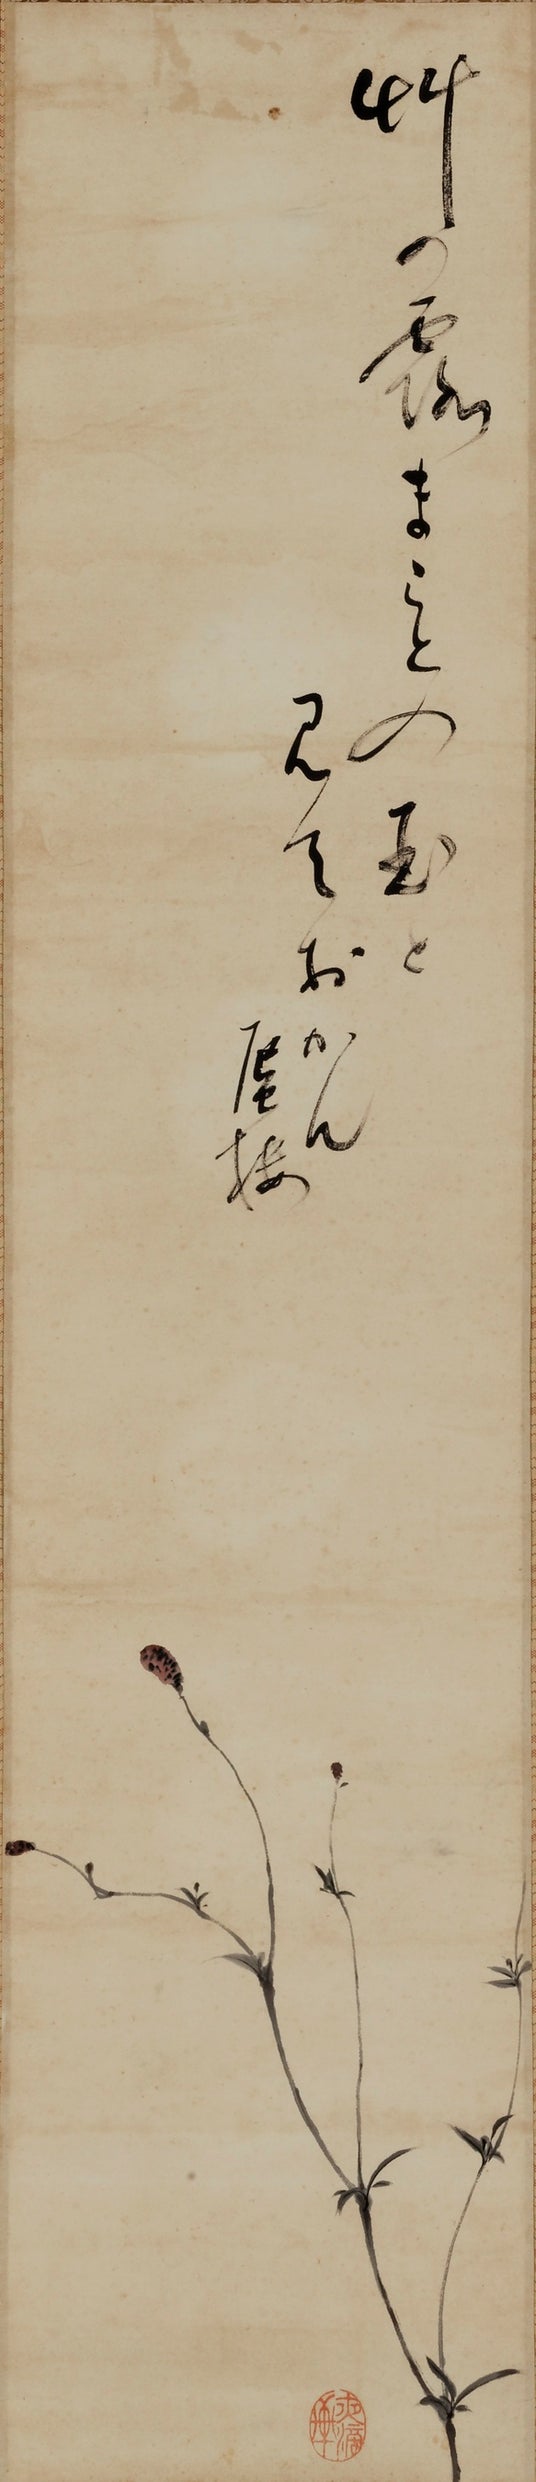 艸の露まことの玉と
見ておかん